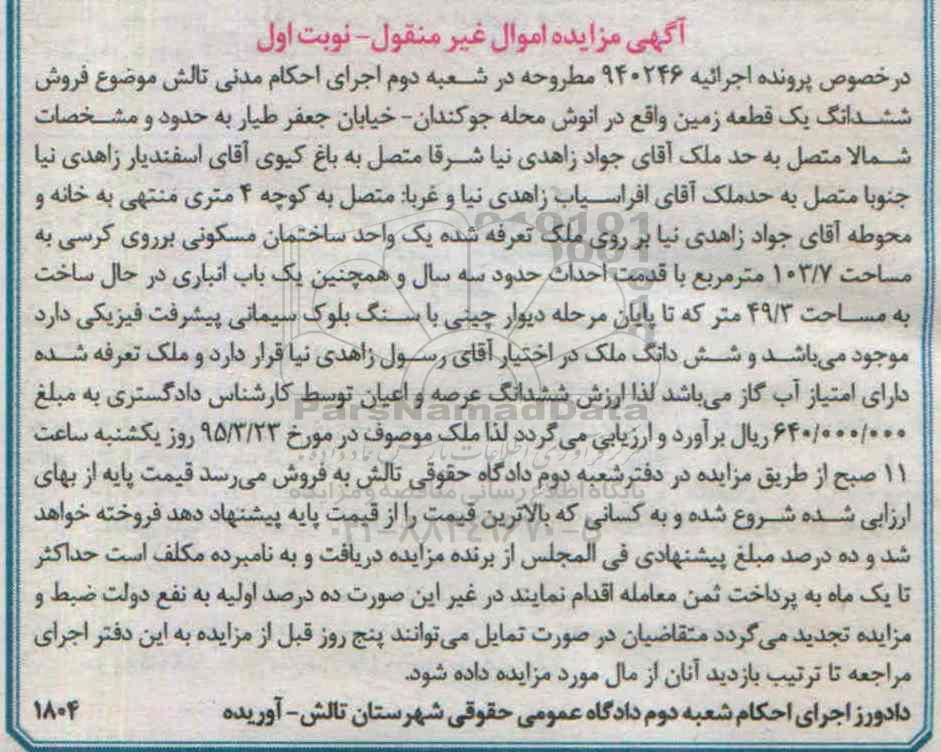 آگهی مزایده اموال غیر منقول- نوبت اول
درخصوص پرونده اجرائیه ۹۴۰۲۴۶ مطروحه در شعبه دوم اجرای احکام مدنی تالش موضوع فروش
ششدانگ یک قطعه زمین واقع در انوش محله جوکندان- خیابان جعفر طیار به حدود و مشخصات
شمالا متصل به حد ملک آقای جواد زاهدی نیا شرقا متصل به باغ کیوی آقای اسفندیار زاهدی نیا
جنوبا متصل به حدملک آقای افراسیاب زاهدی نیا و غربا: متصل به کوچه ۴ متری منتهی به خانه و
محوطه آقای جواد زاهدی نیا بر روی ملک تعرفه شده یک واحد ساختمان مسکونی برروی کرسی به
مساحت ۱۰۳/۷ مترمربع با قدمت احداث حدود سه سال و همچنین یک باب انباری در حال ساخت
به مساحت ۴۹/۳ متر که تا پایان مرحله دیوار چینی با سنگ بلوک سیمانی پیشرفت فیزیکی دارد
موجود می‌باشد و شش دانگ ملک در اختیار آقای رسول زاهدی نیا قرار دارد و ملک تعرفه شده
دارای امتیاز آب گاز می‌باشد لذا ارزش ششدانگ عرصه و اعیان توسط کارشناس دادگستری به مبلغ
۶۴۰/۰۰۰/۰۰۰ ریال برآورد و ارزیابی می‌گردد لذا ملک موصوف در مورخ ۹۵/۳/۲۳ روز یکشنبه ساعت
۱۱ صبح از طریق مزایده در دفترشعبه دوم دادگاه حقوقی تالش به فروش می‌رسد قیمت پایه از بهای
ارزابی شده شروع شده و به کسانی که بالاترین قیمت را از قیمت پایه پیشنهاد دهد فروخته خواهد
شد و ده درصد مبلغ پیشنهادی فی المجلس از برنده مزایده دریافت و به نامبرده مکلف است حداکثر
تا یک ماه به پرداخت ثمن معامله اقدام نمایند در غیر این صورت ده درصد اولیه به نفع دولت ضبط و
مزایده تجدید می‌گردد متقاضیان در صورت تمایل می‌توانند پنج روز قبل از مزایده به این دفتر اجرای
مراجعه تا ترتیب بازدید آنان از مال مورد مزایده داده شود.
دادورز اجرای احکام شعبه دوم دادگاه عمومی حقوقی شهرستان تالش- آوریده ۱۸۰۴
ParsNamadData
پایگاه اطلاع رسانی مناقصه و مزایده
۰۲۱-۸۸۳۴۹۶۷۰-۵